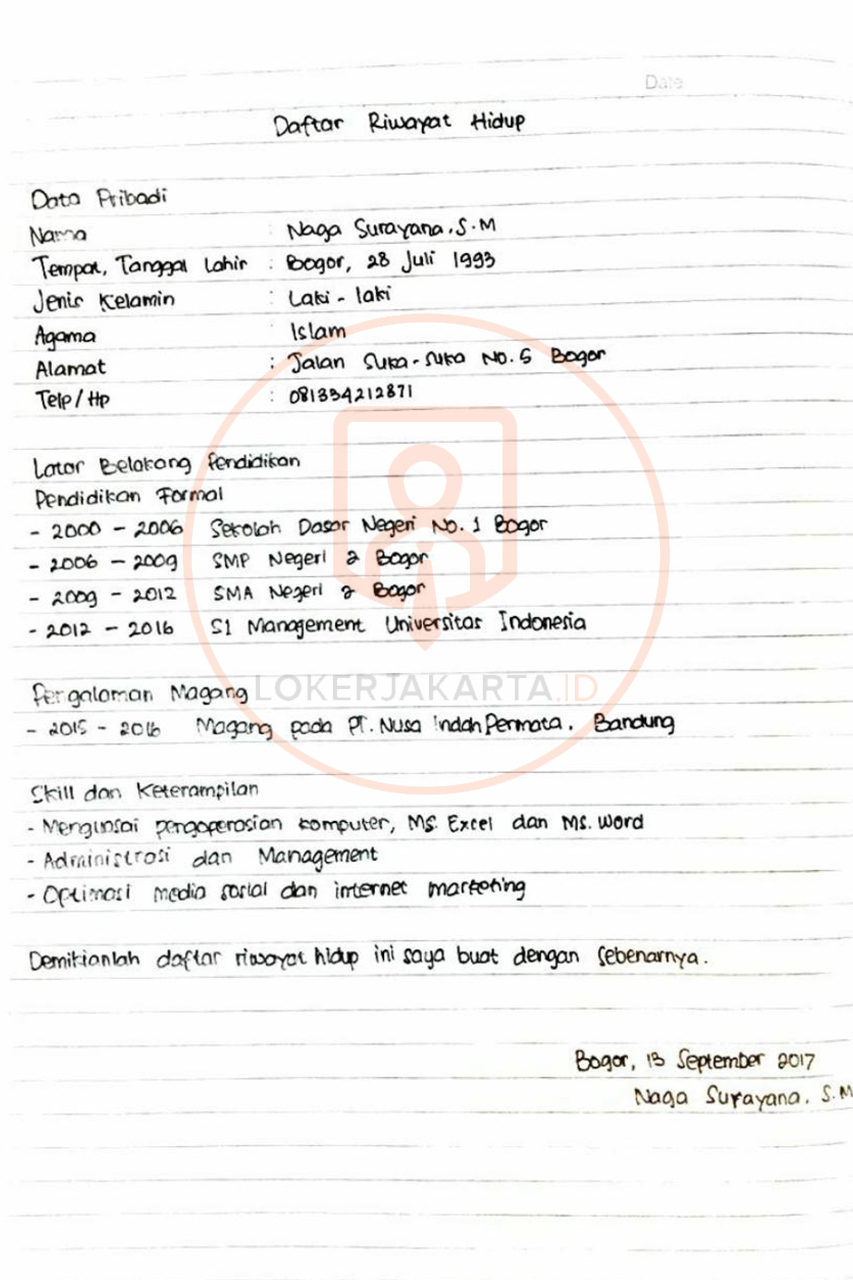 Date
Daftar Riwayat Hidup
Data Pribadi
Nama : Naga Surayana, S.M
Tempat, Tanggal Lahir : Bogor, 28 Juli 1993
Jenis Kelamin : Laki - laki
Agama : Islam
Alamat : Jalan Suka-Suka No. 5 Bogor
Telp / Hp : 081334212871
Latar Belakang Pendidikan
Pendidikan Formal
- 2000 - 2006 Sekolah Dasar Negeri No. 1 Bogor
- 2006 - 2009 SMP Negeri 2 Bogor
- 2009 - 2012 SMA Negeri 2 Bogor
- 2012 - 2016 S1 Management Universitas Indonesia
Pengalaman Magang
LOKERJAKARTA.ID
- 2015 - 2016 Magang pada PT. Nusa Indah Permata, Bandung
Skill dan Keterampilan
- Menguasai pengoperasian komputer, MS. Excel dan MS. Word
- Administrasi dan Management
- Optimasi media sosial dan internet marketing
Demikianlah daftar riwayat hidup ini saya buat dengan sebenarnya.
Bogor, 13 September 2017
Naga Surayana, S.M